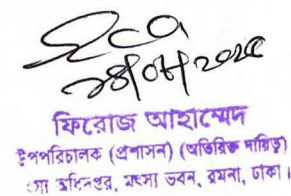 ২৪/০৮/২০২৫
ফিরোজ আহাম্মেদ
উপপরিচালক (প্রশাসন) (অতিরিক্ত দায়িত্ব)
মৎস্য অধিদপ্তর, মৎস্য ভবন, রমনা, ঢাকা।